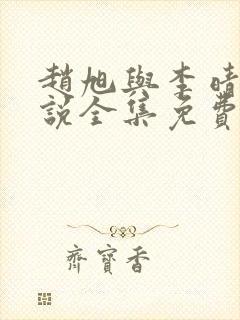 趙旭與李晴
說全集免費
齊寶香